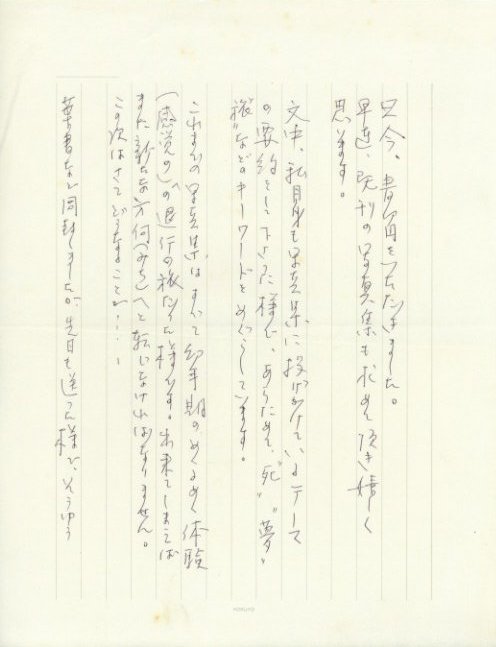 只今、書簡をいただきました。
早速、既刊の写真集も求めて頂き嬉しく
思います。
文中、私自身も写真集に投げかけているテーマ
の要約をして下さった様で、あらためて、“死”“夢”
“旅”などのキーワードをめぐらしています。
これまでの写真集はすべて幼年期のめくるめく体験
（感覚の）への退行の旅だった様です。出来てしまえば
また新たな方向（みち）へと転じなければなりません。
この次はさてどうなることか・・・
葉書など同封しましたが、先日も送った様で、そうゆう
KOKUYO